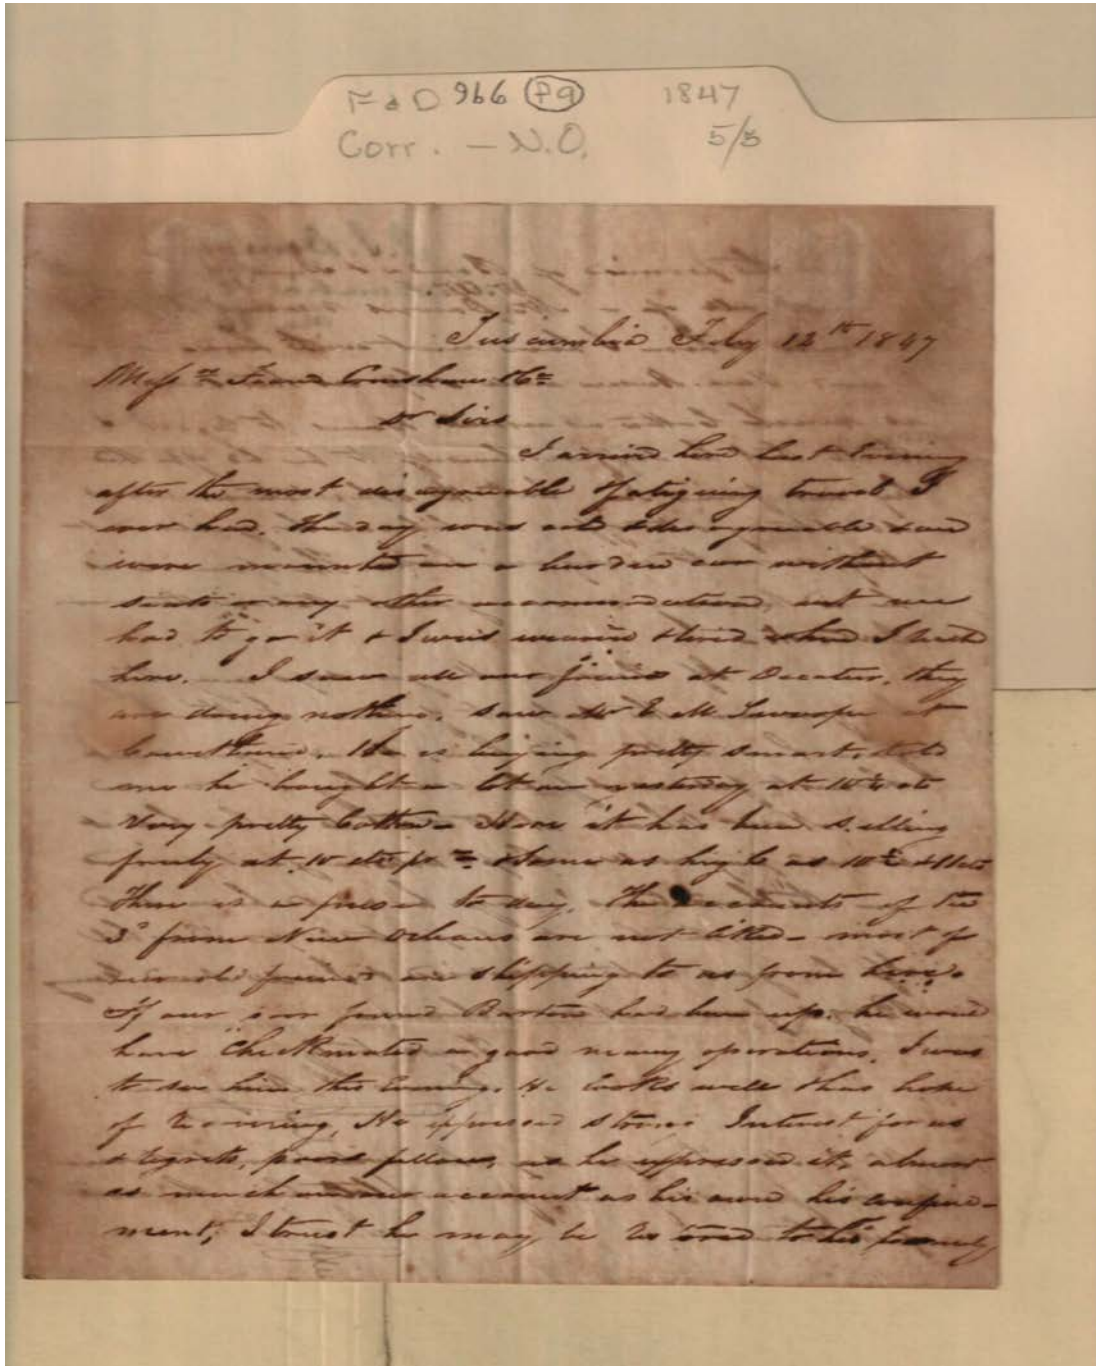 F & D 966 P9 1847
Corr. - N.O. 5/5
Tuscumbia Feby 12th 1847
Messrs Fearn Crenshaw & Co
Dr Sirs
I arrived here last Evening
after the most disagreeable & fatiguing travel I
ever had. The day was cold & disagreeable & we
were mounted on a burden car without
seats or any other accommodation, but we
had to go it & I was wearied & tired when I reached
here. I saw all our friends at Decatur, they
are doing nothing. Saw Mr E M Swoope at
Courtland. He is buying pretty smart, told
me he bought a lot on yesterday at 10 cts
Very pretty Cotton - Here it has been selling
freely at 10 cts pr & some as high as 10
There is a pause to day. The accounts of the
3d from New Orleans are not liked - most of
our old friends are shipping to us from here.
If our poor friend Barton had been up, he would
have Checkmated a good many operations. I was
to see him this Evening. He looks well & has hope
of recovering, He expressed strong Interest for us
& regrets, poor fellow, as he expressed it, almost
as much on our account as his own his confine-
ment, I trust he may be restored to his family